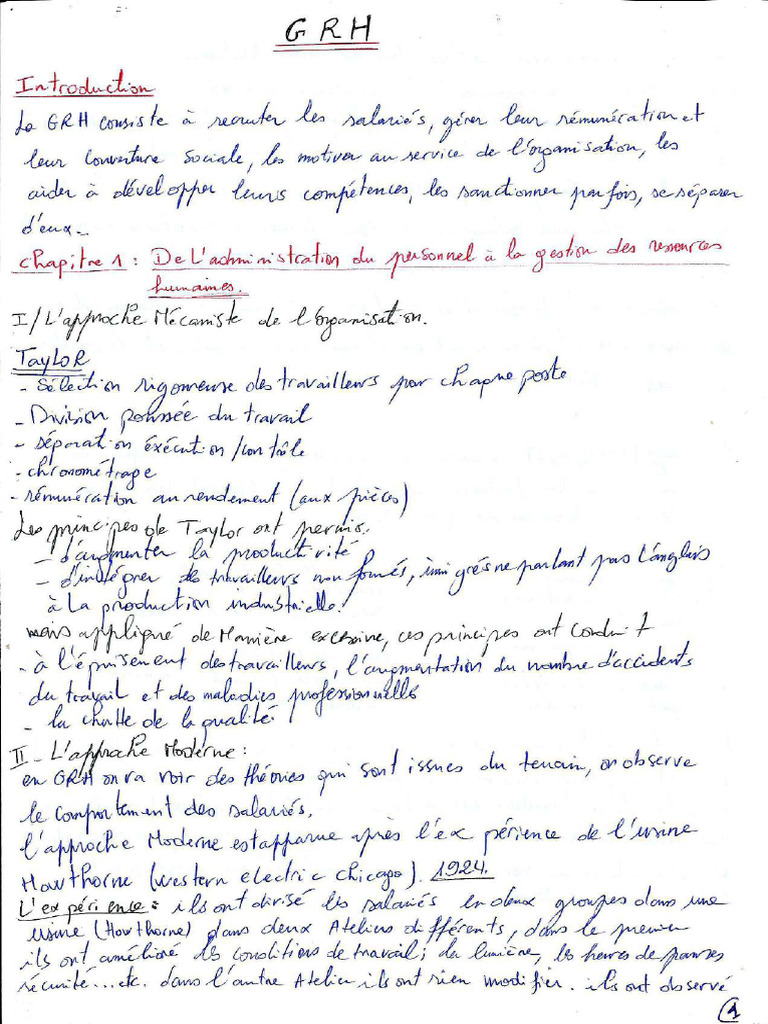 GRH
Introduction
La GRH consiste à recruter les salariés, gérer leur rémunération et
leur couverture sociale, les motiver au service de l'organisation, les
aider à développer leurs compétences, les sanctionner parfois, se séparer
d'eux.
Chapitre 1 : De L'administration du personnel à la gestion des ressources
humaines.
I/ L'approche Mécaniste de l'organisation.
TAYLOR
- Sélection rigoureuse des travailleurs par chaque poste
- Division poussée du travail
- séparation éxécution/contrôle
- chronométrage
- rémunération au rendement (aux pièces)
Les principes de Taylor ont permis.
- d'augmenter la productivité
- d'intégrer des travailleurs non formés, immigrés ne parlant pas l'anglais
à la production industrielle.
mais appliqué de Manière excessive, ces principes ont conduit
- à l'épuisement des travailleurs, l'augmentation du nombre d'accidents
du travail et des maladies professionnelles
- la chutte de la qualité.
II - L'approche Moderne :
en GRH on va voir des théories qui sont issues du terrain, on observe
le comportement des salariés.
l'approche Moderne est apparue après l'expérience de l'usine
Howthorne (western electric chicago). 1924.
L'expérience : ils ont divisé les salariés en deux groupes dans une
usine (Howthorne) dans deux Ateliers différents, dans le premier
ils ont amélioré les conditions de travail ; la lumière, les heures de pauses
sécurité... etc. dans l'autre Atelier ils ont rien modifier. ils ont observé
1